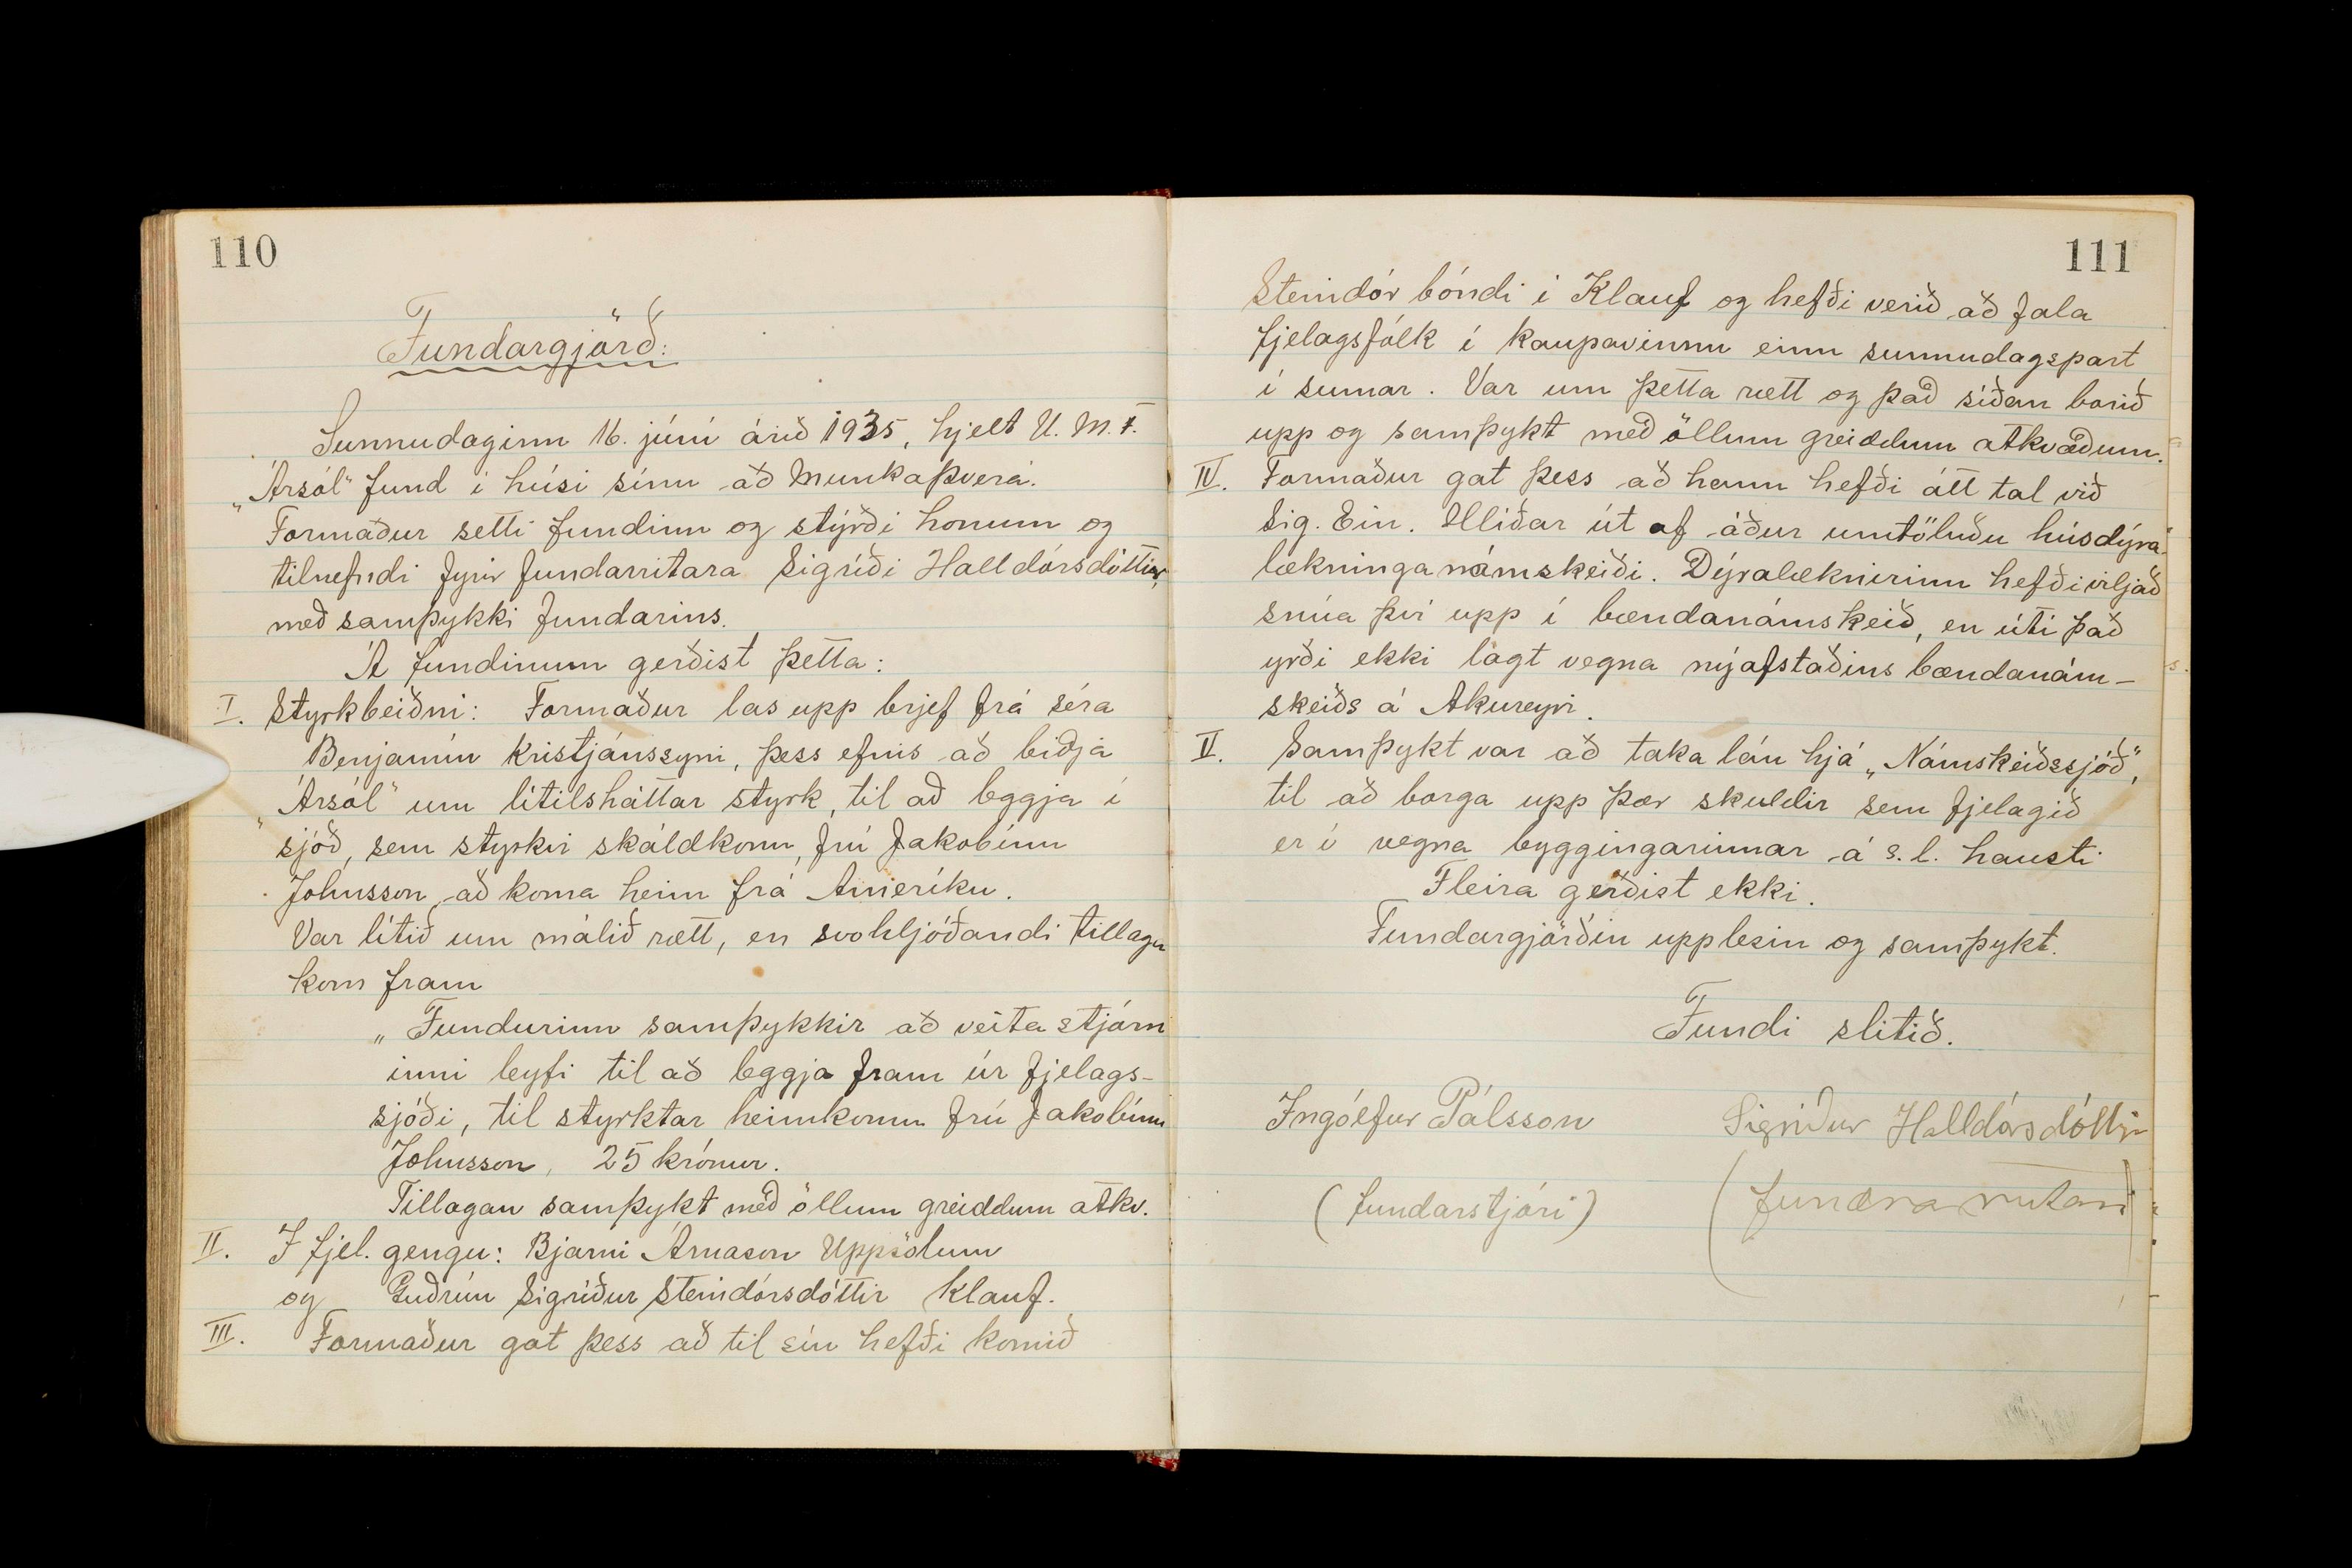 110
Fundargjörð:
Sunnudaginn 16. júní árið 1935, hjelt U. M. F.
„Ársól" fund í húsi sínu að Munkaþverá.
Formaður setti fundinn og stýrði honum og
tilnefndi fyrir fundarritara Sigríði Halldórsdóttir,
með samþykki fundarins.
Á fundinum gerðist þetta:
I. Styrkbeiðni: Formaður las upp brjef frá séra
Benjamín Kristjánssyni, þess efnis að biðja
„Ársól" um lítilsháttar styrk, til að leggja í
sjóð, sem styrkir skáldkonu, frú Jakobínu
Johnsson, að koma heim frá Ameríku.
Var lítið um málið rætt, en svohljóðandi tillaga
kom fram
„Fundurinn samþykkir að veita stjórn
inni leyfi til að leggja fram úr fjelags-
sjóði, til styrktar heimkomu frú Jakobínu
Johnsson, 25 krónur.
Tillagan samþykt með öllum greiddum atkv.
II. Í fjel. gengu: Bjarni Árnason Uppsölum
og Guðrún Sigríður Steindórsdóttir Klauf.
III. Formaður gat þess að til sín hefði komið
111
Steindór bóndi í Klauf og hefði verið að fala
fjelagsfólk í kaupavinnu einn sunnudagspart
í sumar. Var um þetta rætt og það síðan borið
upp og samþykt með öllum greiddum atkvæðum.
IV. Formaður gat þess að hann hefði átt tal við
Sig. Ein. Hlíðar út af áður umtöluðu húsdýra-
lækninganámskeiði. Dýralæknirinn hefði viljað
snúa því upp í bændanámskeið, en úti það
yrði ekki lagt vegna nýafstaðins bændanám-
skeiðs á Akureyri.
V. Samþykt var að taka lán hjá „Námskeiðssjóð",
til að borga upp þær skuldir sem fjelagið
er í vegna byggingarinnar á s.l. hausti
Fleira gerðist ekki.
Fundargjörðin upplesin og samþykt.
Fundi slitið.
Ingólfur Pálsson Sigríður Halldórsdóttir
(fundarstjóri) (fundraritari)